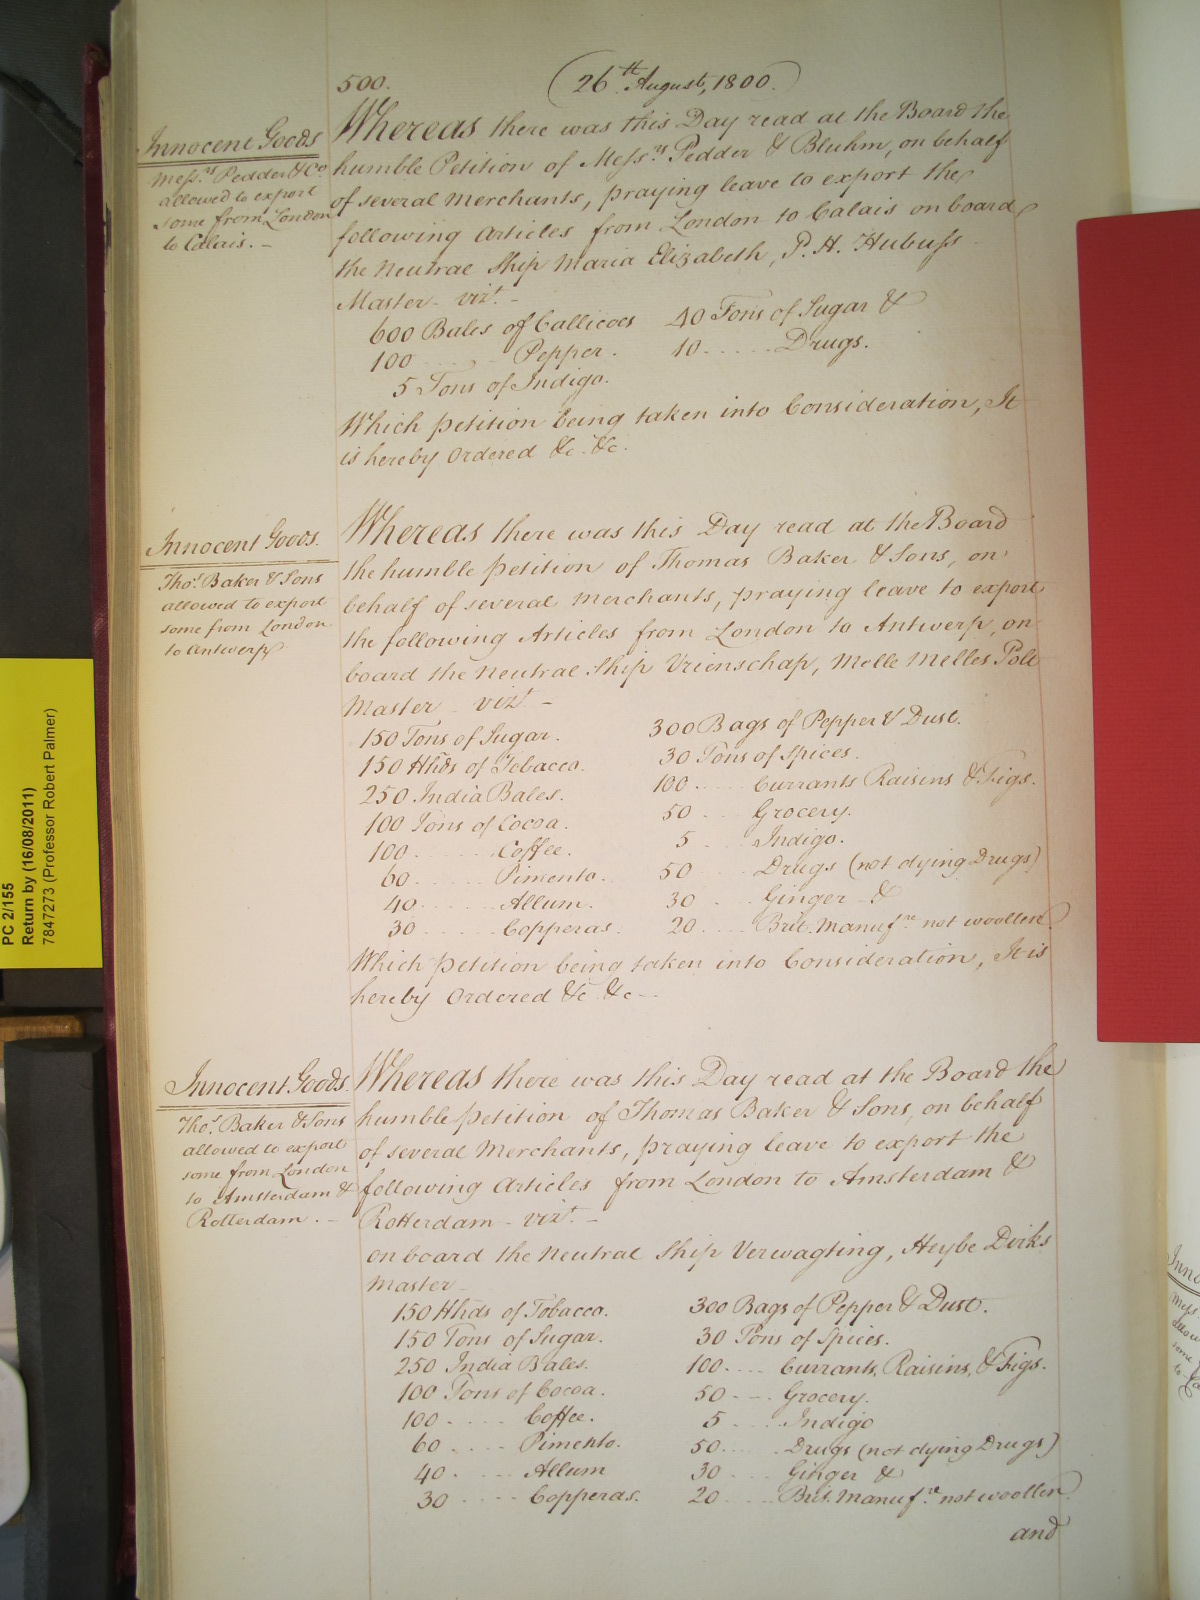 500.
(26th August, 1800.)
Innocent Goods
Mess.rs Pedder & Co
allowed to export
some from London
to Calais. -
Whereas there was this Day read at the Board the
humble Petition of Mess.rs Pedder & Bluhm, on behalf
of several Merchants, praying leave to export the
following Articles from London to Calais on board
the Neutral Ship Maria Elizabeth, P. H. Hubuss
Master - vizt. -
600 Bales of Callicoes
40 Tons of Sugar &
100 ..... Pepper.
10 ..... Drugs.
5 Tons of Indigo.
Which Petition being taken into Consideration, It
is hereby Ordered &c. &c.
Innocent Goods.
Thos. Baker & Sons
allowed to export
some from London
to Antwerp
Whereas there was this Day read at the Board
the humble Petition of Thomas Baker & Sons, on
behalf of several Merchants, praying leave to export
the following Articles from London to Antwerp, on
board the Neutral Ship Vrienschap, Melle Melles Pole
Master - vizt. -
150 Tons of Sugar.
300 Bags of Pepper & Dust.
150 Hhds of Tobacco.
30 Tons of Spices.
250 India Bales.
100 ..... Currants Raisins & Figs.
100 Tons of Cocoa.
50 ... Grocery.
100 ..... Coffee.
5 ... Indigo.
60 ..... Pimento.
50 ..... Drugs (not dying Drugs)
40 ..... Allum.
30 . Ginger - &
30 ..... Copperas.
20 ..... Brit. Manufre not woollen
Which Petition being taken into Consideration, It is
hereby Ordered &c &c - -
Innocent Goods.
Thos. Baker & Sons
allowed to export
some from London
to Amsterdam &
Rotterdam. -
Whereas there was this Day read at the Board the
humble Petition of Thomas Baker & Sons, on behalf
of several Merchants, praying leave to export the
following Articles from London to Amsterdam &
Rotterdam - vizt. -
on board the Neutral Ship Verwagting, Heybe Dirks
Master -
150 Hhds of Tobacco.
300 Bags of Pepper & Dust.
150 Tons of Sugar.
30 Tons of Spices.
250 India Bales.
100 .... Currants, Raisins, & Figs.
100 Tons of Cocoa.
50 - - - Grocery.
100 ..... Coffee.
5 .... Indigo
60 ..... Pimento.
50 .... Drugs (not dying Drugs)
40 ..... Allum
30 ... Ginger &
30 ..... Copperas.
20 .... Brit. Manufre not woollen
and
PC 2/155
Return by (16/08/2011)
7847273 (Professor Robert Palmer)